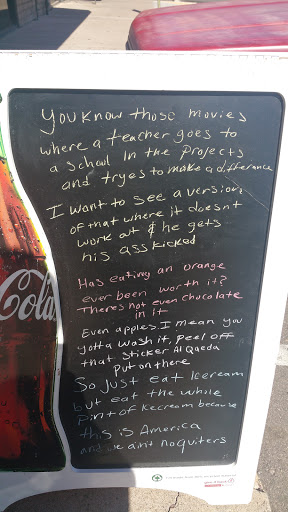 You Know those movies
where a teacher goes to
a School In the Projects
and tryes to make a difference
I want to see a version
of that where it doesnt
work out & he gets
his ass kicked
Has eating an orange
ever been worth it?
Theres not even chocolate
in it
Even apples I mean you
gotta wash it, peel off
that sticker Al Qaeda
put on there
So Just eat Icecream
but eat the whole
Pint of Icecream because
this is America
and we aint no quiters
Cola